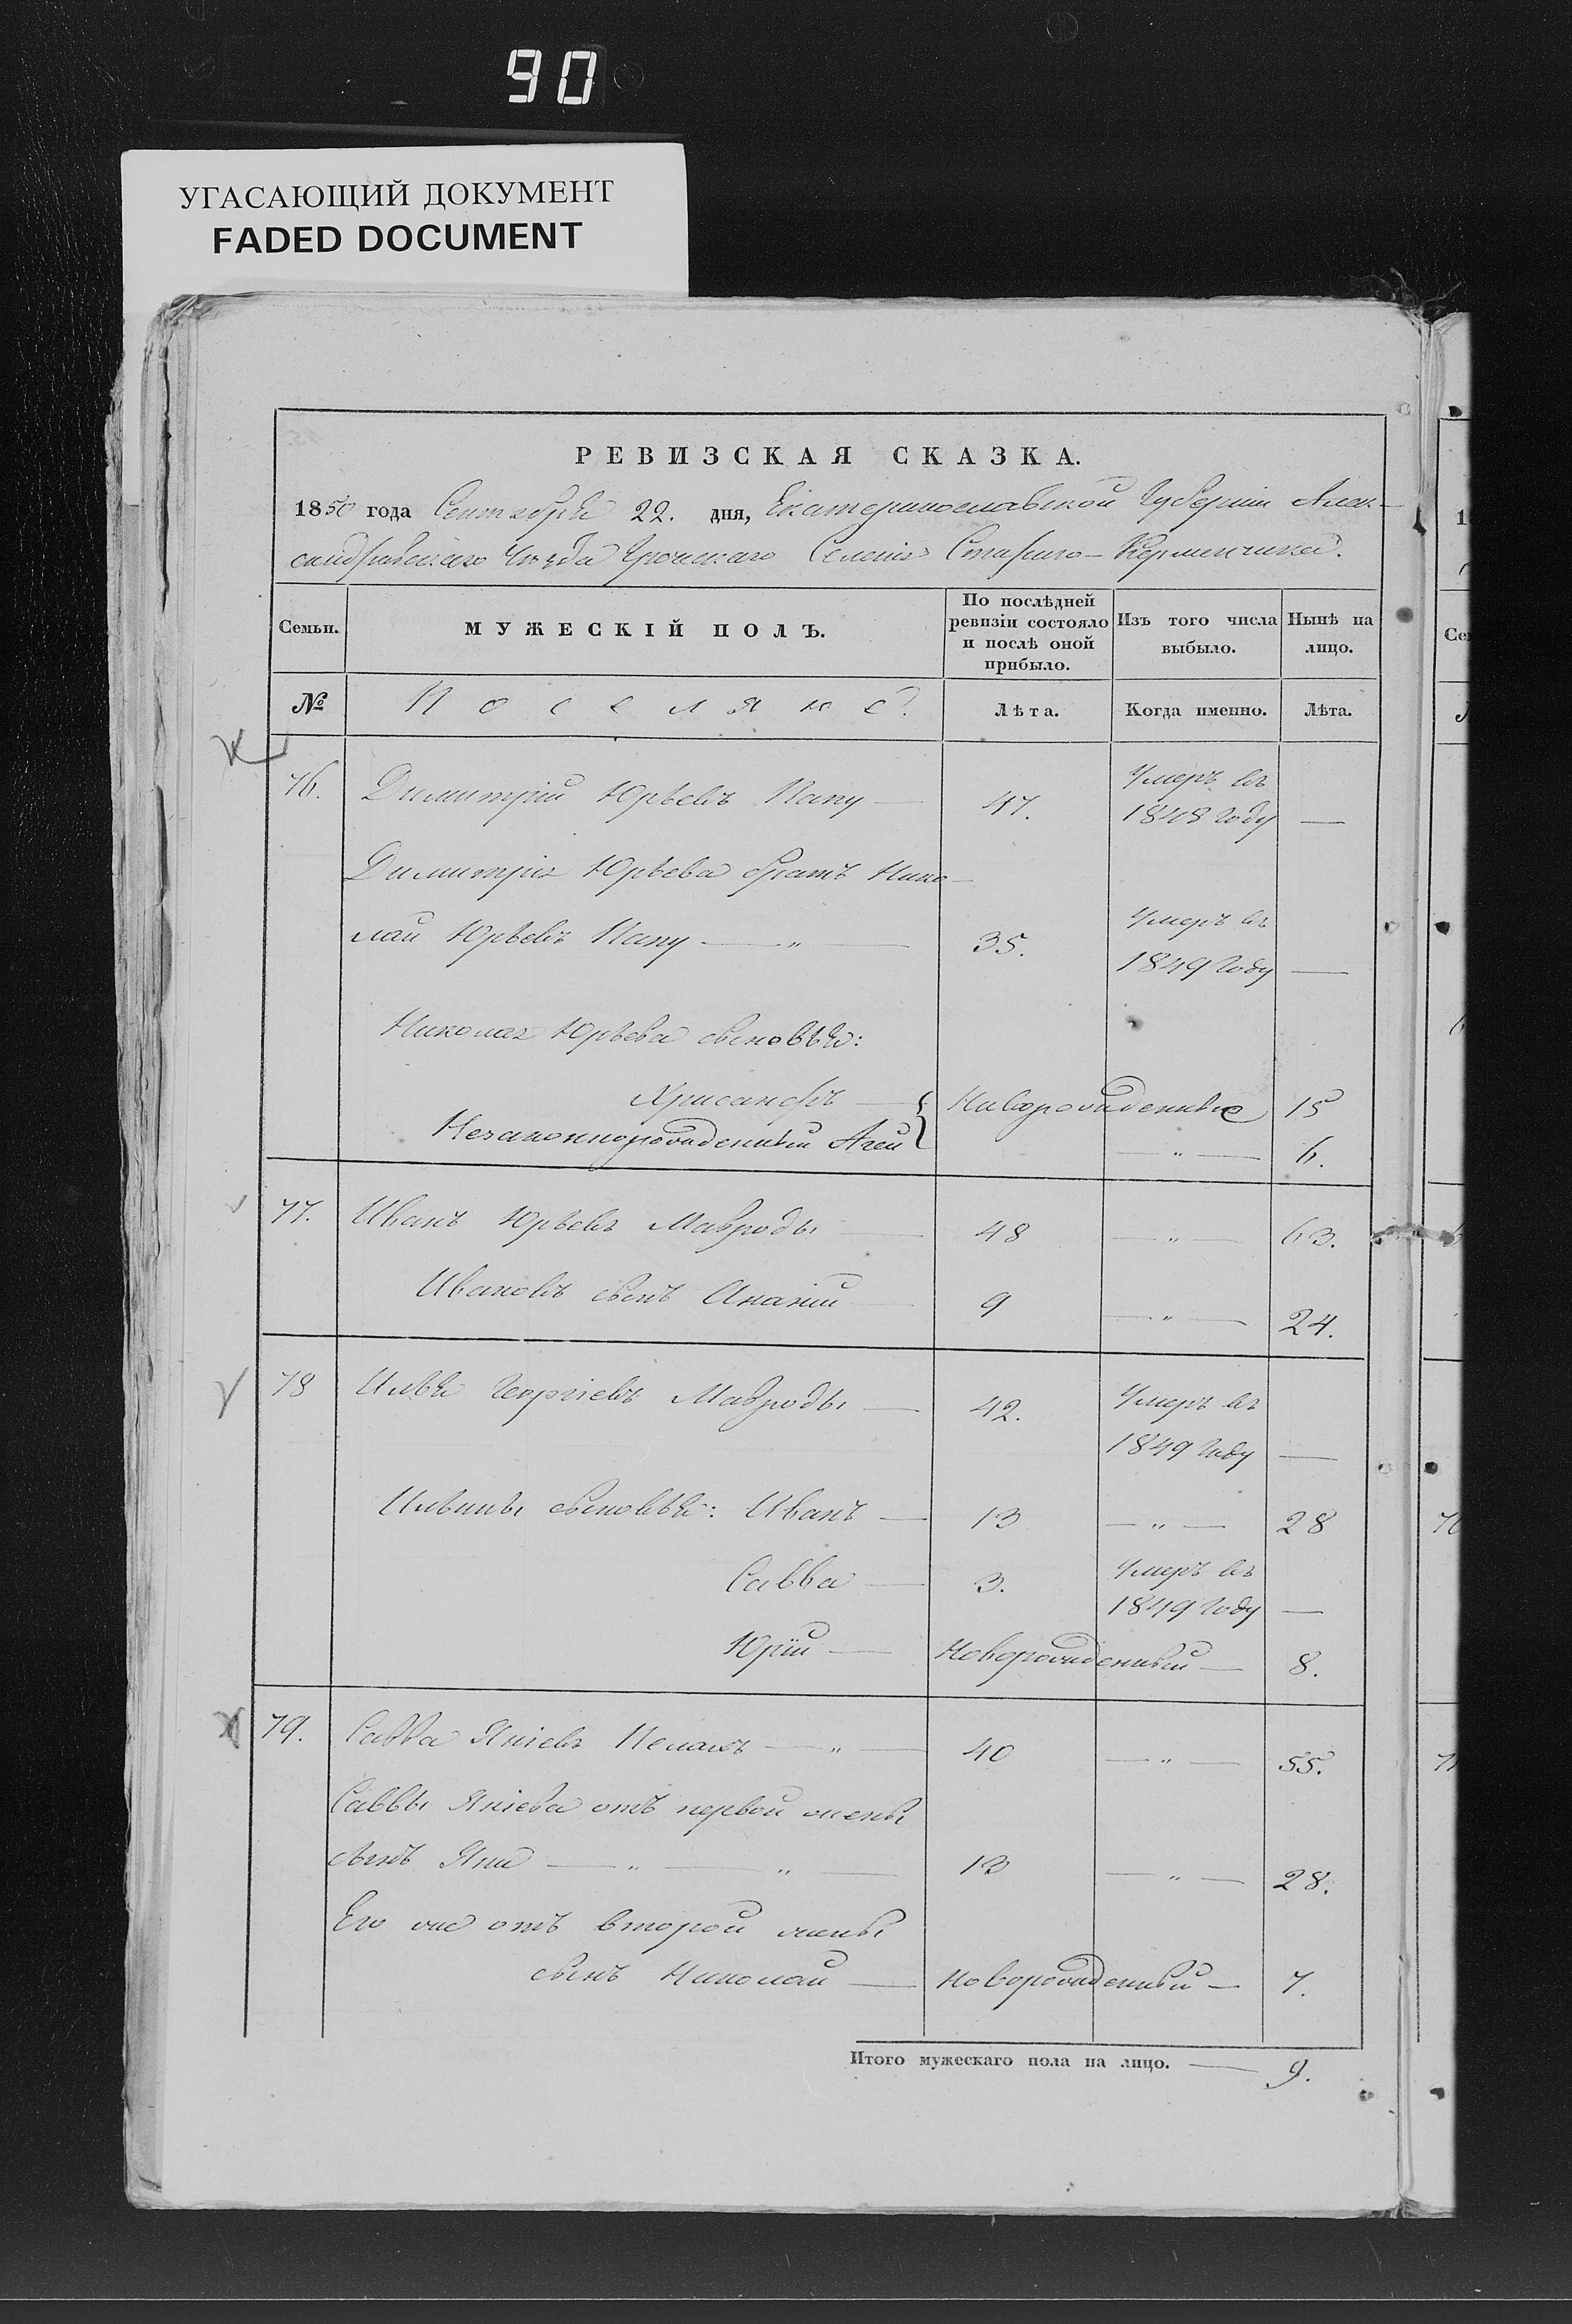 90
УГАСАЮЩИЙ ДОКУМЕНТ
FADED DOCUMENT
РЕВИЗСКАЯ СКАЗКА.
1850 года Сентября 22. дня, Екатеринославской Губерніи Алек-
сандровскаго Уѣзда Греческаго Селенія Стараго-Керменчика.
Семьи.
МУЖЕСКІЙ ПОЛЪ.
По послѣдней ревизіи состояло и послѣ оной прибыло.
Изъ того числа выбыло.
Нынѣ на лицо.
№ Поселяне. Лѣта. Когда именно. Лѣта.
76. Димитрій Юрьевъ Папу — 47. Умеръ въ
1848 году —
Димитрія Юрьева братъ Нико-
лай Юрьевъ Папу — " — 35. Умеръ въ
1849 году —
Николая Юрьева сыновья:
Хрисанфъ — Новорожденные 15
Незаконнорожденный Агей — " — 6.
77. Иванъ Юрьевъ Мавроды — 48 — " — 63.
Ивановъ сынъ Ананій — 9 — " — 24.
78 Илья Георгіевъ Мавроды — 42. Умеръ въ
1849 году —
Ильины сыновья: Иванъ — 13 — " — 28
Савва — 3. Умеръ въ
1849 году —
Юрій — Новорожденный — 8.
79. Савва Яніевъ — " — 40 — " — 55.
Саввы Яніева отъ первой жены
сынъ Яни — " — " — 13 — " — 28.
Его же отъ второй жены
сынъ Николай — Новорожденный — 7.
Итого мужескаго пола на лицо. — 9.